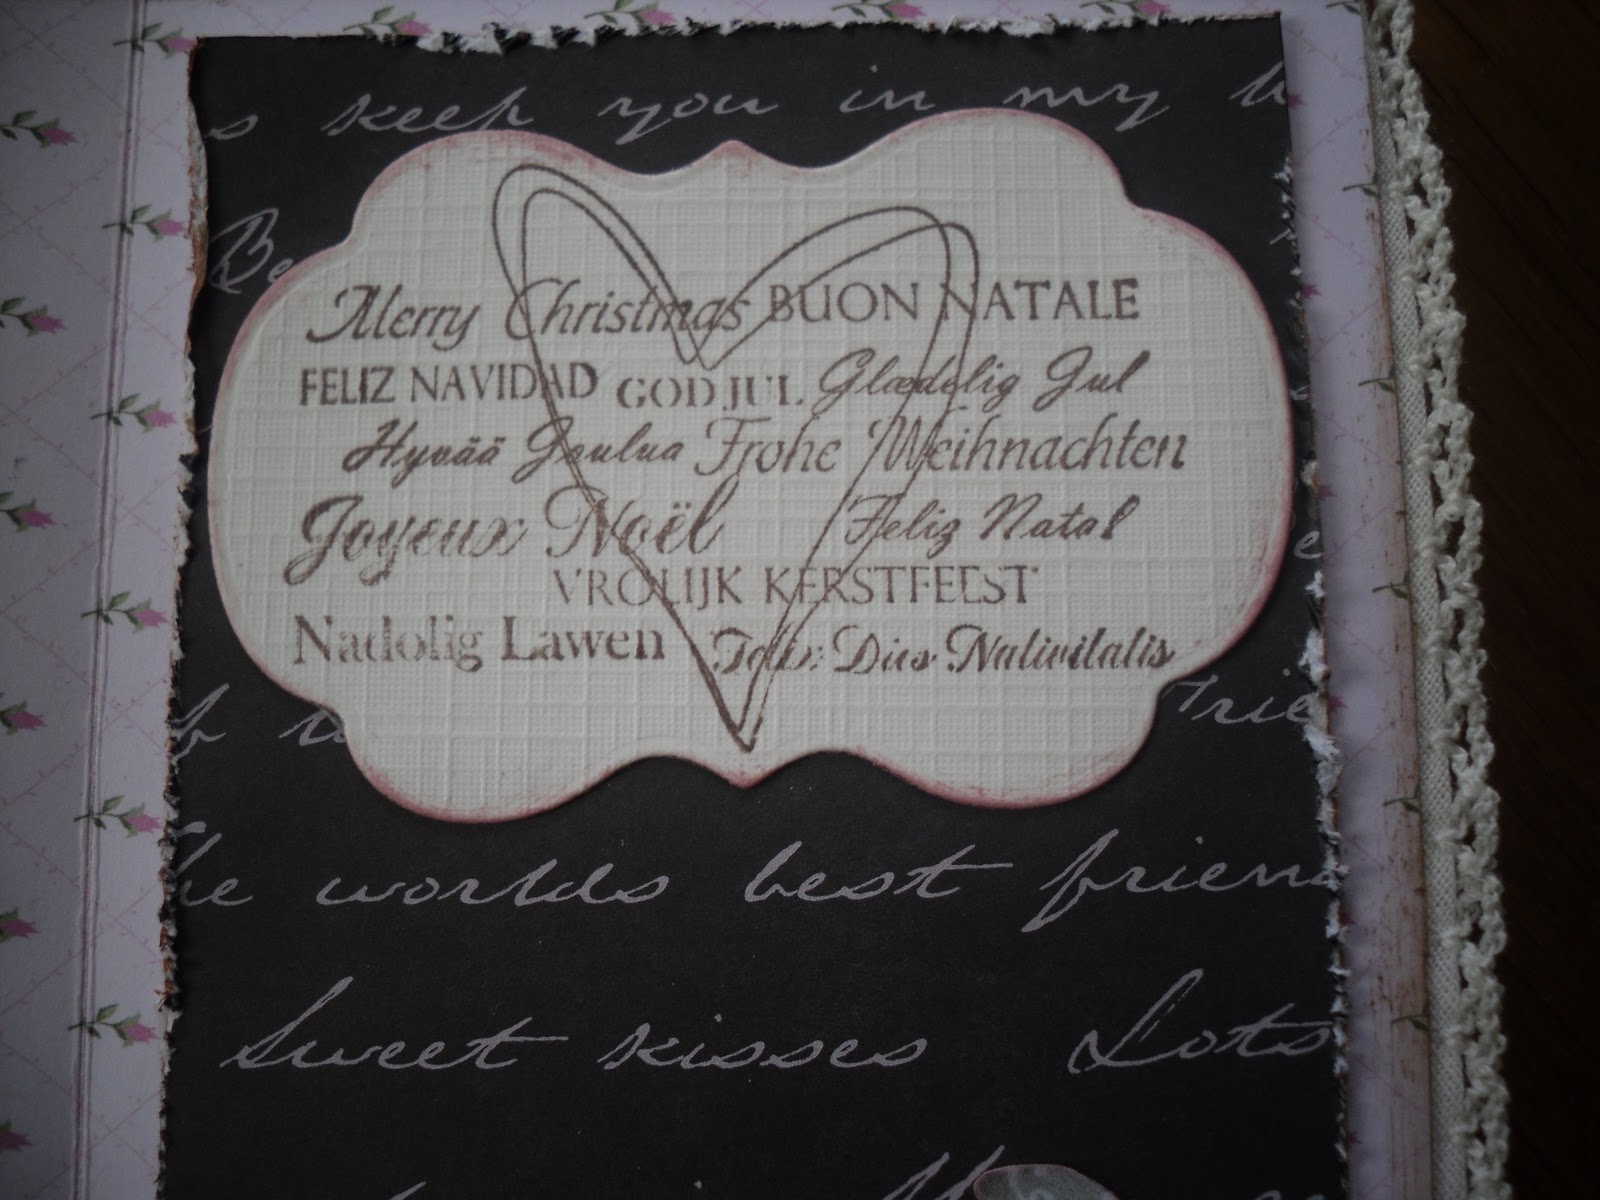 keep you in my
Be
Merry Christmas BUON NATALE
FELIZ NAVIDAD GOD JUL Glædelig Jul
Hyvää Joulua Frohe Weihnachten
Joyeux Noël Feliz Natal
VROLIJK KERSTFEEST
Nadolig Lawen Dies Nativitatis
worlds best frien
Sweet kisses Lots